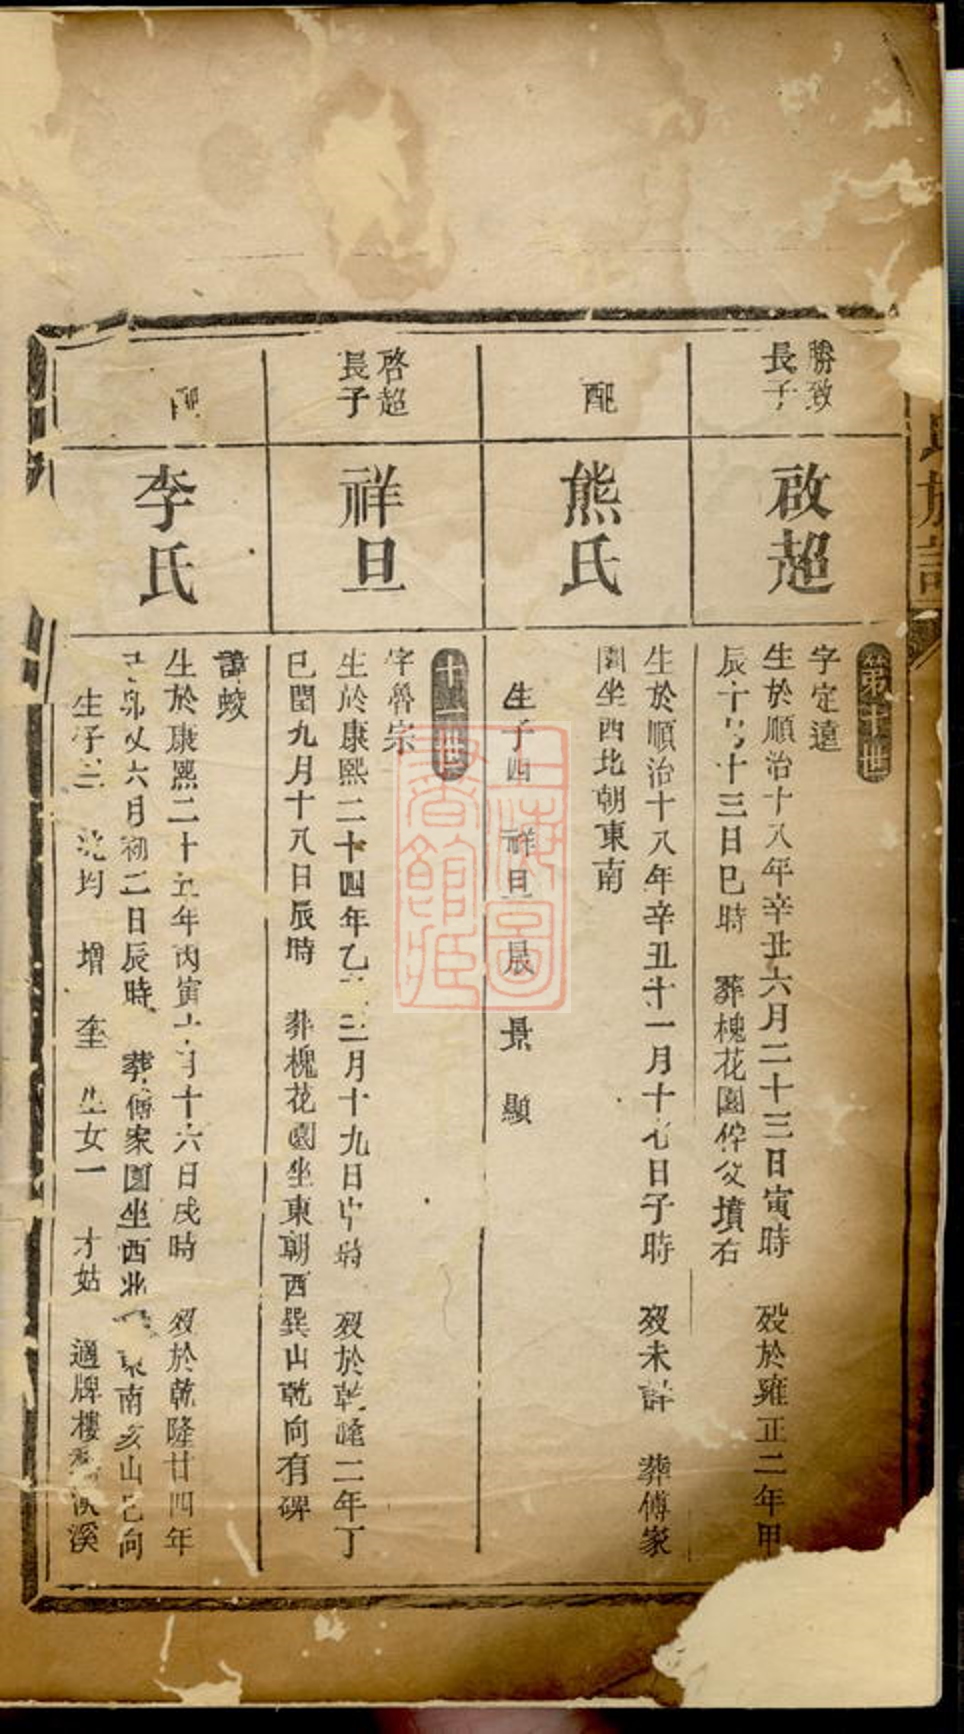 氏族譜
第十世
勝致
長子
啟超
字定遠
生於順治十八年辛丑六月二十三日寅時 殁於雍正二年甲
辰十 月十三日巳時 葬槐花園 父墳右
配
熊氏
生於順治十八年辛丑十一月十七日子時 殁未詳 葬傅家
園坐西北朝東南
生子四 祥旦 晨 景 顯
十一世
啓超
長子
祥旦
字魯宗
生於康熙二十四年乙 三月十九日 時 殁於乾隆二年丁
巳閏九月十八日辰時 葬槐花園坐東朝西巽山乾向有碑
配
李氏
諱蛟
生於康熙二十五年丙寅 月十六日戌時 殁於乾隆廿四年
己卯 六月初二日辰時 葬傅家園坐西北 東南亥山巳向
生子三 均 增 奎 生女一 才姑 適牌樓 溪
上海圖書館藏